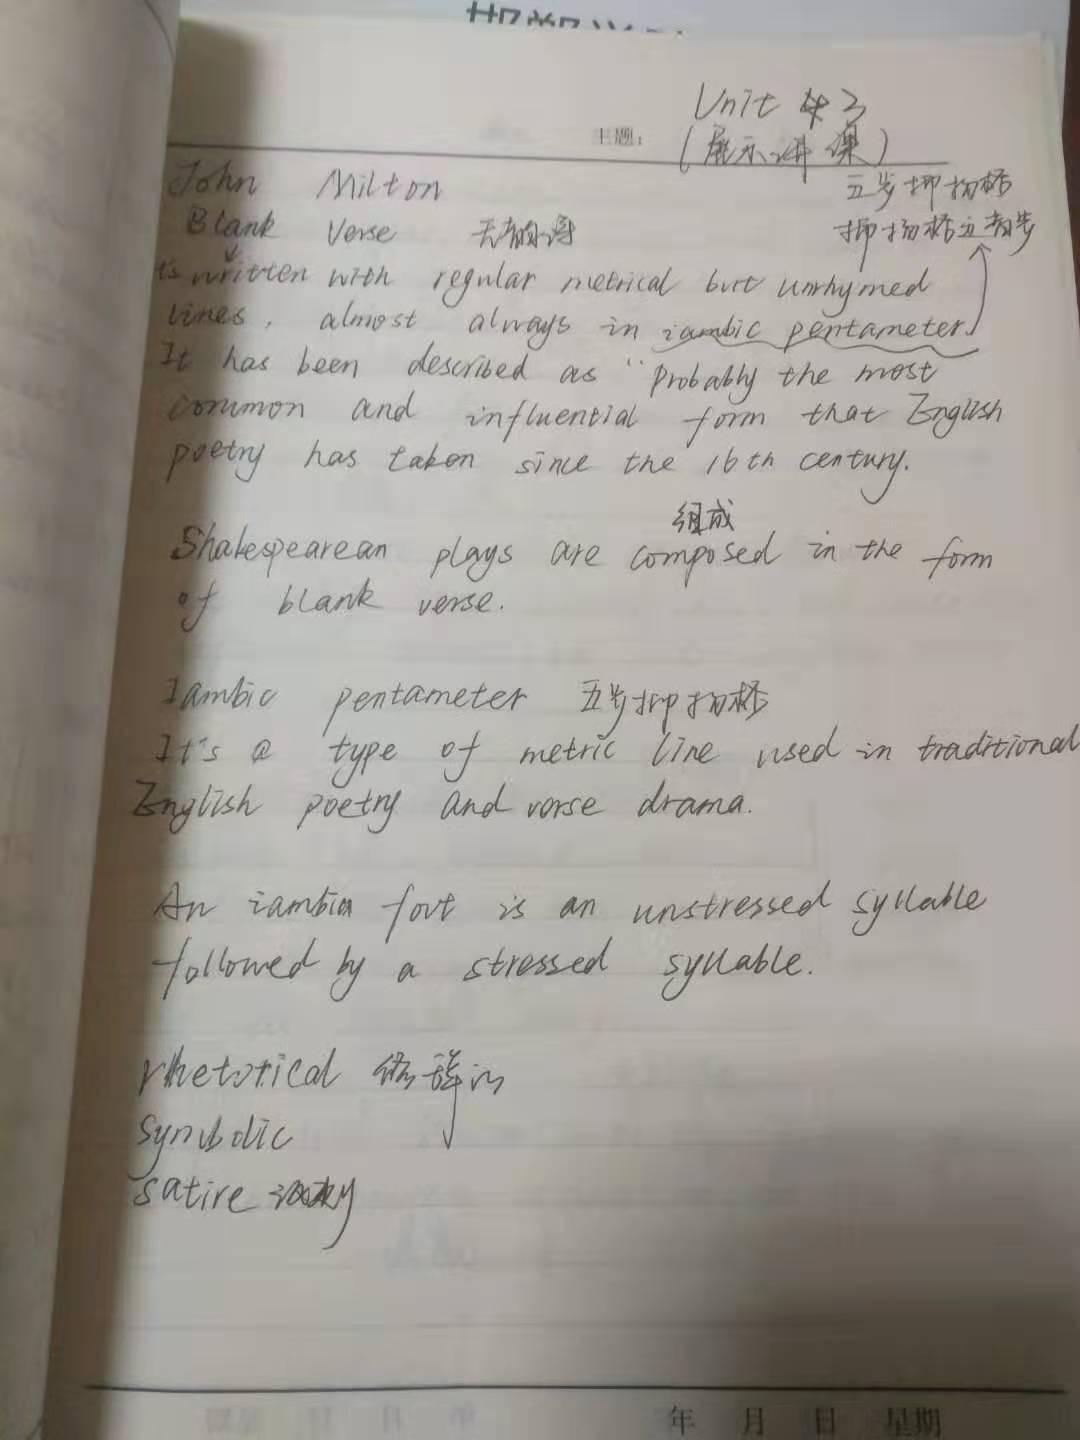 Unit 3
主题:
(展示讲课)
John Milton
五步抑扬格
Blank Verse 无韵诗
抑扬格五音步
t's written with regular metrical but unrhymed
lines, almost always in iambic pentameter.
It has been described as "probably the most
common and influential form that English
poetry has taken since the 16th century.
组成
Shakespearean plays are composed in the form
of blank verse.
Iambic pentameter 五步抑扬格
It's a type of metric line used in traditional
English poetry and verse drama.
An iambic foot is an unstressed syllable
followed by a stressed syllable.
rhetorical 修辞
symbolic
satire
年 月 日 星期